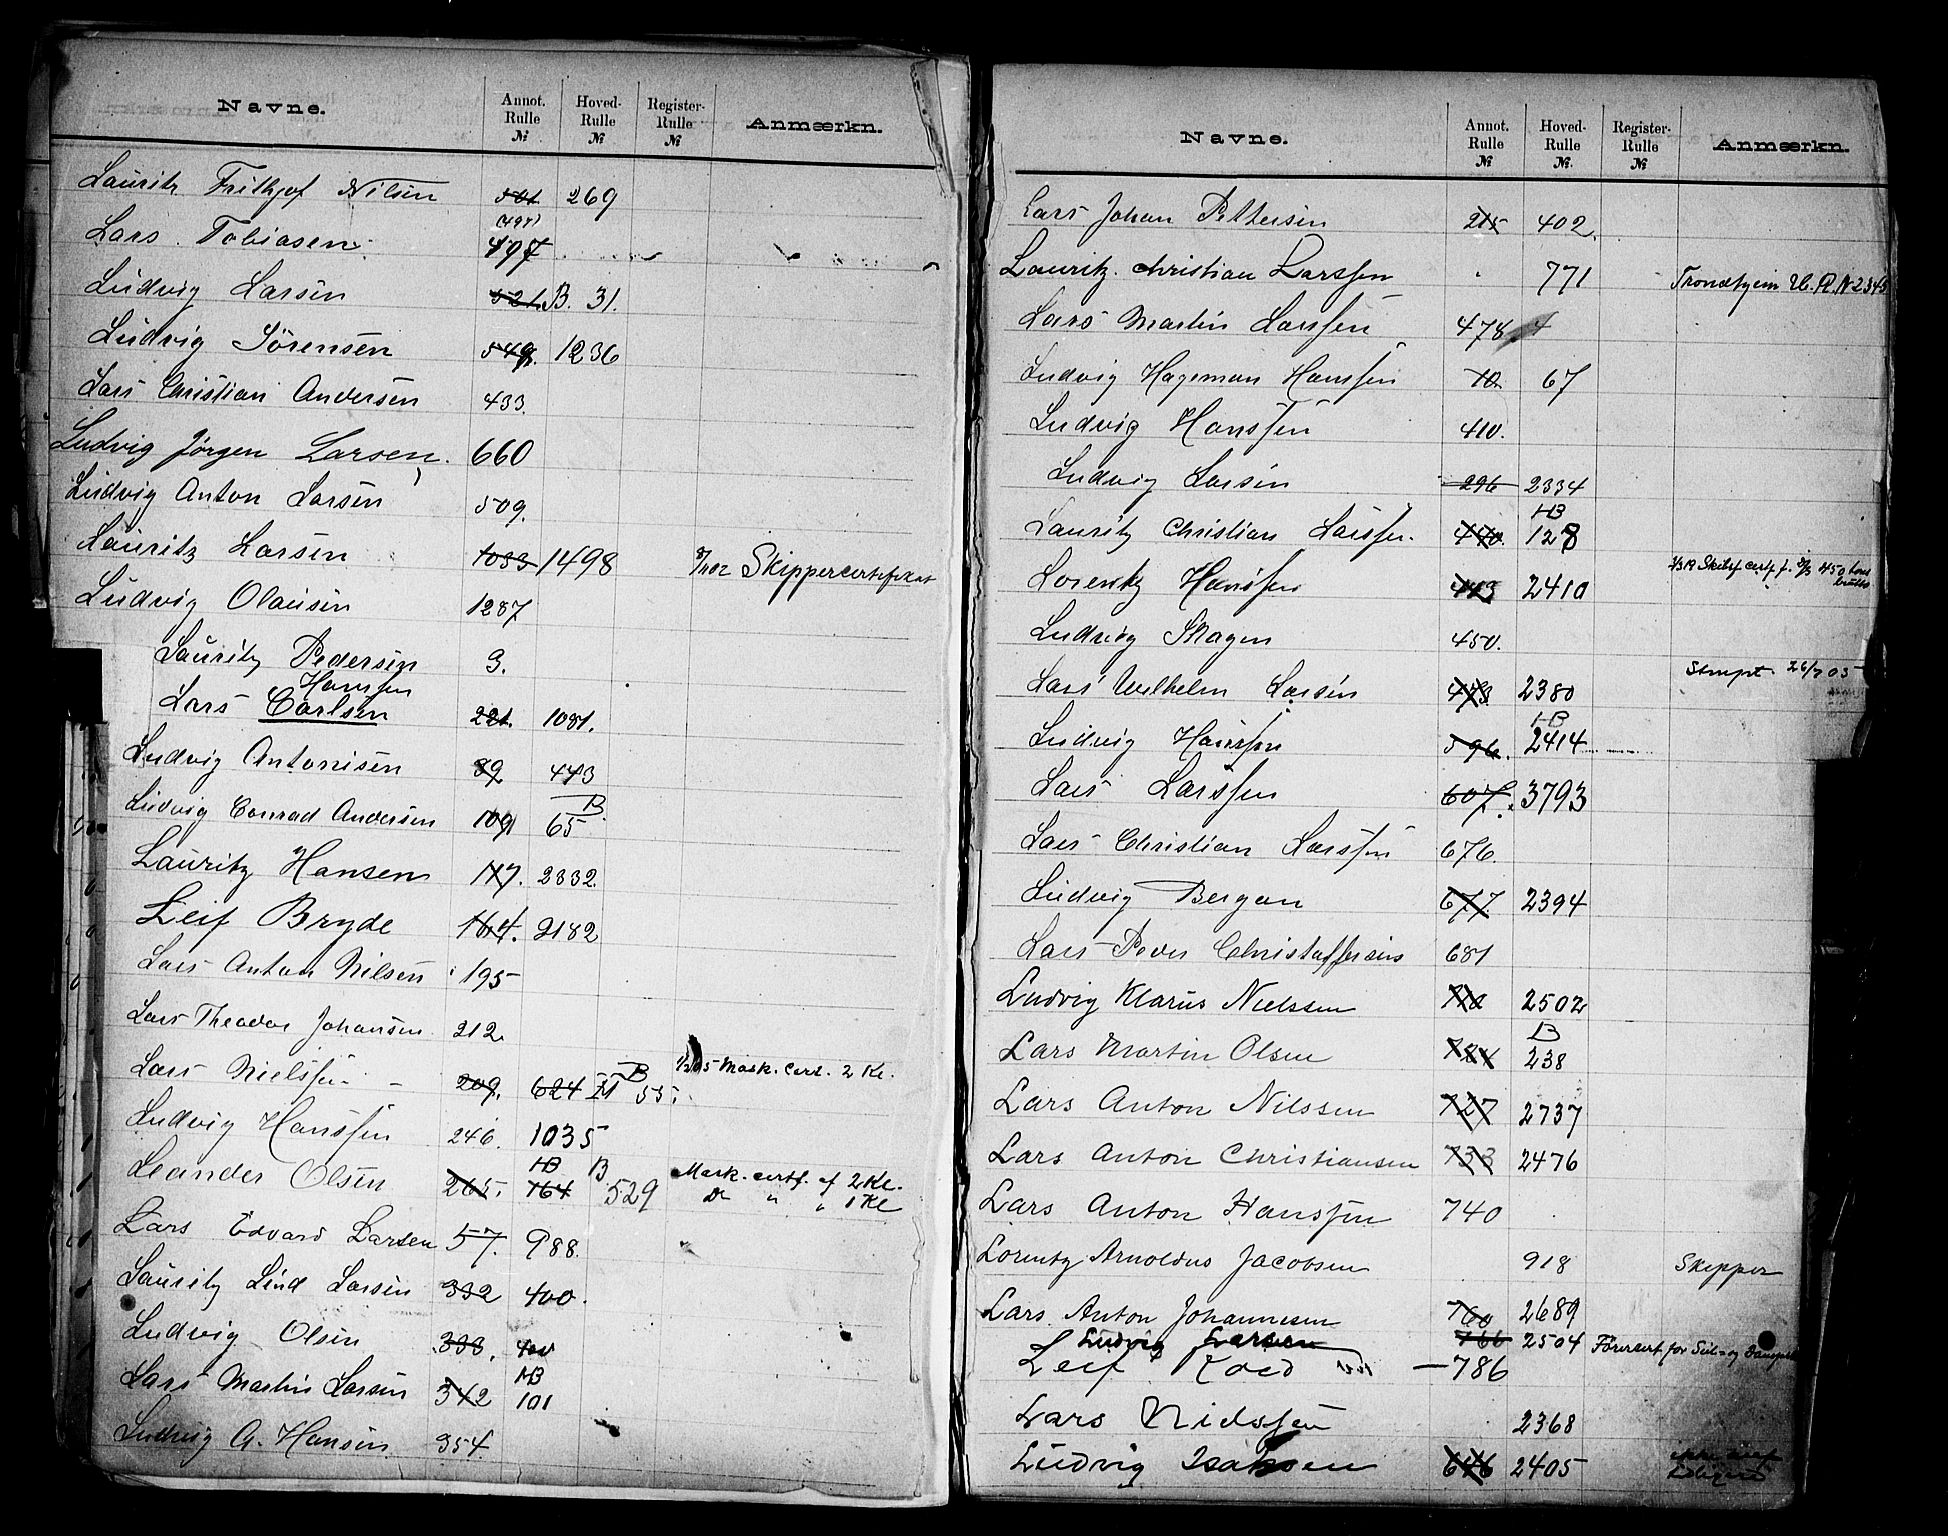 Navne. Annot. Rulle № Hoved- Rulle № Register- Rulle № Anmærkn.
Lauritz Frithjof Nilsen 501 269
Lars Tobiasen (497) 497
Ludvig Larsen 521 B. 31.
Ludvig Sørensen 549. 1236
Lars Christian Andersen 433.
Ludvig Jørgen Larsen. 660
Ludvig Anton Larsen 509.
Lauritz Larsen 1033 1498 Skippercertifikat
Ludvig Olausen 1287
Lauritz Pedersen 3.
Hansen
Lars Carlsen 221. 1081.
Ludvig Antonisen 89 443
Ludvig Conrad Andersen 109 B 65
Lauritz Hansen 117. 2332.
Leif Bryde 164. 2182
Lars Anton Nilsen 195
Lars Theodor Johansen 212
Lars Nielssen 209. 624 B 55. Mask. Cert. 2 Kl.
Ludvig Hanssen 246. 1035
Leander Olsen 265. HB 764 B 529 Mask. certf. af 2 Kl.
Do " " 1 Kl
Lars Edvard Larsen 57. 988.
Lauritz Lind Larsen 332 400.
Ludvig Olsen 333. 400
Lars Martin Larsen 342 HB 101
Ludvig A. Hansen 354.
Navne. Annot. Rulle № Hoved- Rulle № Register- Rulle № Anmærkn.
Lars Johan Pettersen 215 402.
Lauritz Christian Larssen 771 Trondhjem H. R. N 2345
Lars Martin Larssen 478
Ludvig Hageman Hanssen 10 67
Ludvig Hanssen 410.
Ludvig Larsen 296 2334
Lauritz Christian Larssen. 440. HB 128
Lorentz Hanssen 443 2410 450 tons brutto
Ludvig Skagen 450.
Lars Wilhelm Larsen 473 2380 26/7 05
Ludvig Hanssen 596. HB 2414
Lars Larssen 607. 3793
Lars Christian Larssen 676.
Ludvig Bergan 677. 2394
Lars Peder Christoffersen 681
Ludvig Klarus Nielssen 710 2502
Lars Martin Olsen 724 B 238
Lars Anton Nilssen 727 2737
Lars Anton Christiansen 733 2476
Lars Anton Hanssen 740
Lorentz Arnoldus Jacobsen 918 Skipper
Lars Anton Johannesen 760 2689
Ludvig Larsen 766 2504 Førercert for Seil- og Dampsk
Leif Koed 786
Lars Nielssen 2368
Ludvig Isaksen 646 2405